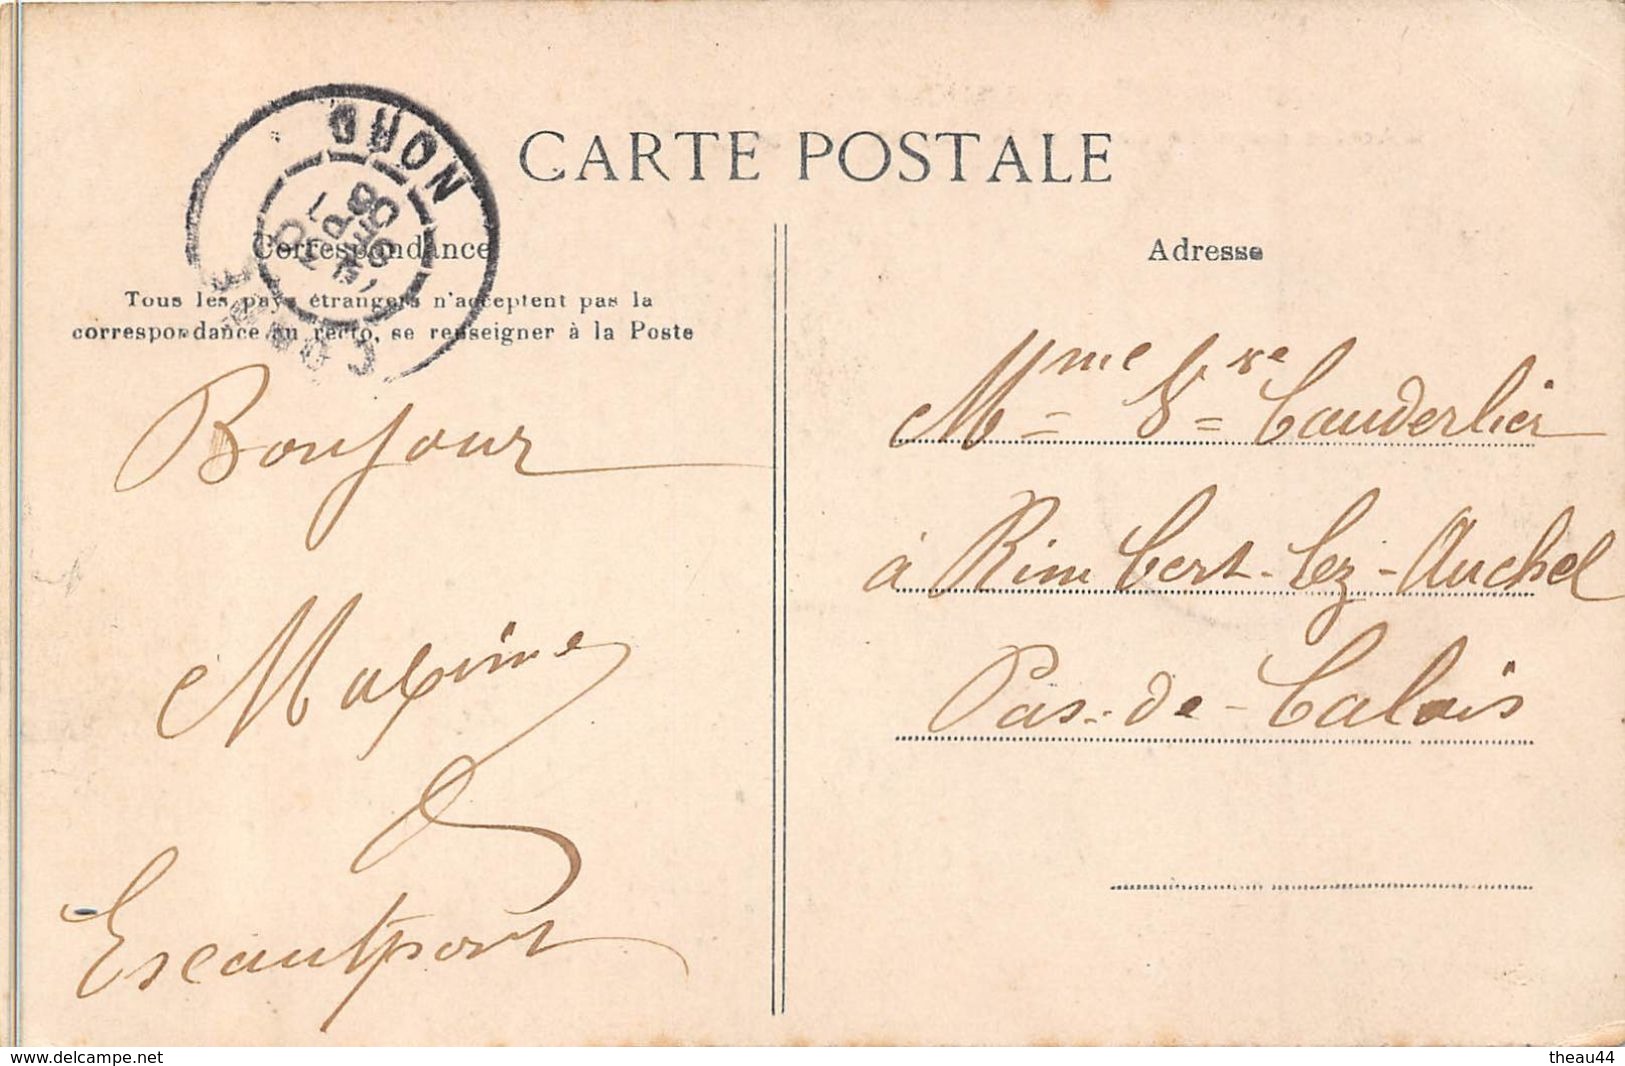 CARTE POSTALE
Correspondance
Tous les pays étrangers n'acceptent pas la
correspondance au recto, se renseigner à la Poste
NORD
Bonjour
Maxime
Escautpont
Adresse
Mme Vve Cauderlier
à Rimbert-lez-Auchel
Pas-de-Calais
www.delcampe.net
theau44